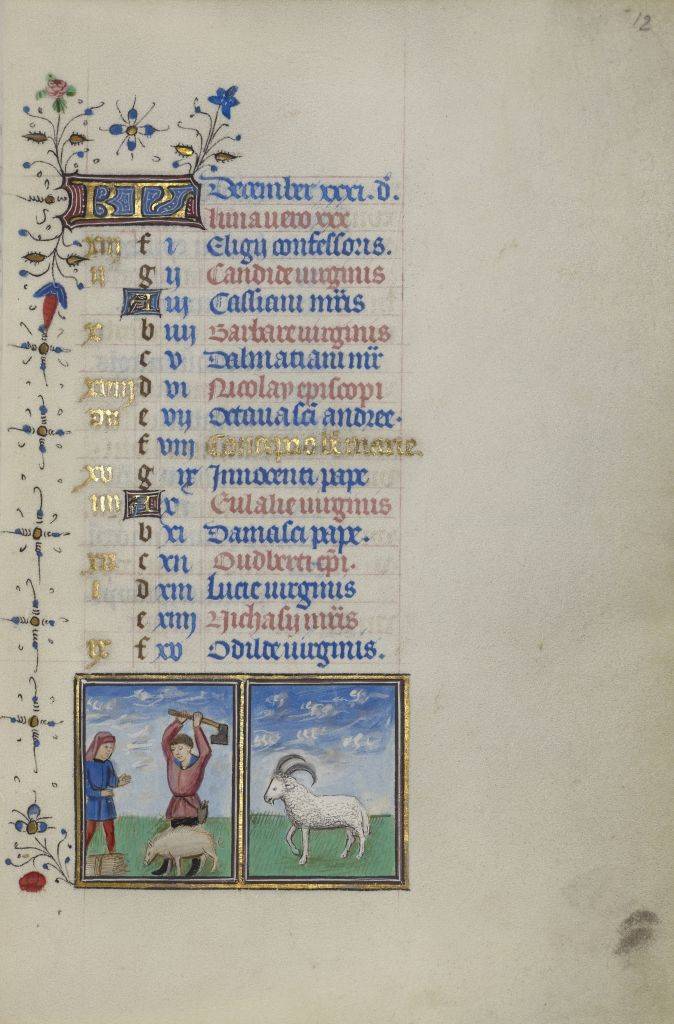 12
KL December xxxi. d.
luna vero xxx
xiii f i Eligii confessoris.
ii g ii Candide virginis
A iii Cassiani mris
x b iiii Barbare virginis
c v Dalmatiani mr
xviii d vi Nicolay episcopi
vii e vii Octava sci andree.
f viii Conceptio be marie.
xv g ix Innocenti pape
iiii A x Eulalie virginis
b xi Damasci pape.
xii c xii Oudberti epi.
i d xiii Lucie virginis
e xiiii Nichasii mris
ix f xv Odilde virginis.